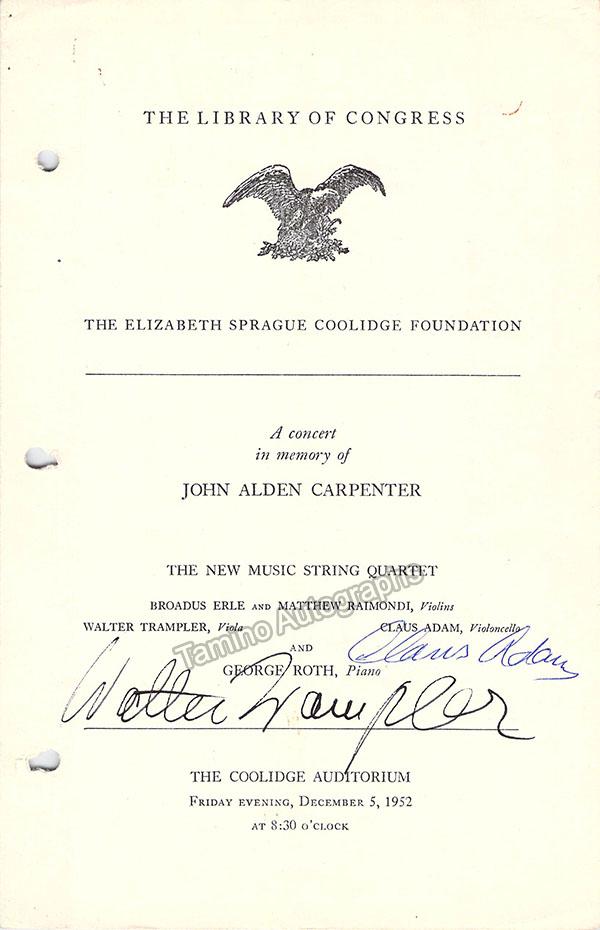 THE LIBRARY OF CONGRESS
THE ELIZABETH SPRAGUE COOLIDGE FOUNDATION
A concert
in memory of
JOHN ALDEN CARPENTER
THE NEW MUSIC STRING QUARTET
BROADUS ERLE AND MATTHEW RAIMONDI, Violins
WALTER TRAMPLER, Viola CLAUS ADAM, Violoncello
Tamino Autographs
AND
Claus Adam
GEORGE ROTH, Piano
Walter Trampler
THE COOLIDGE AUDITORIUM
FRIDAY EVENING, DECEMBER 5, 1952
AT 8:30 O'CLOCK